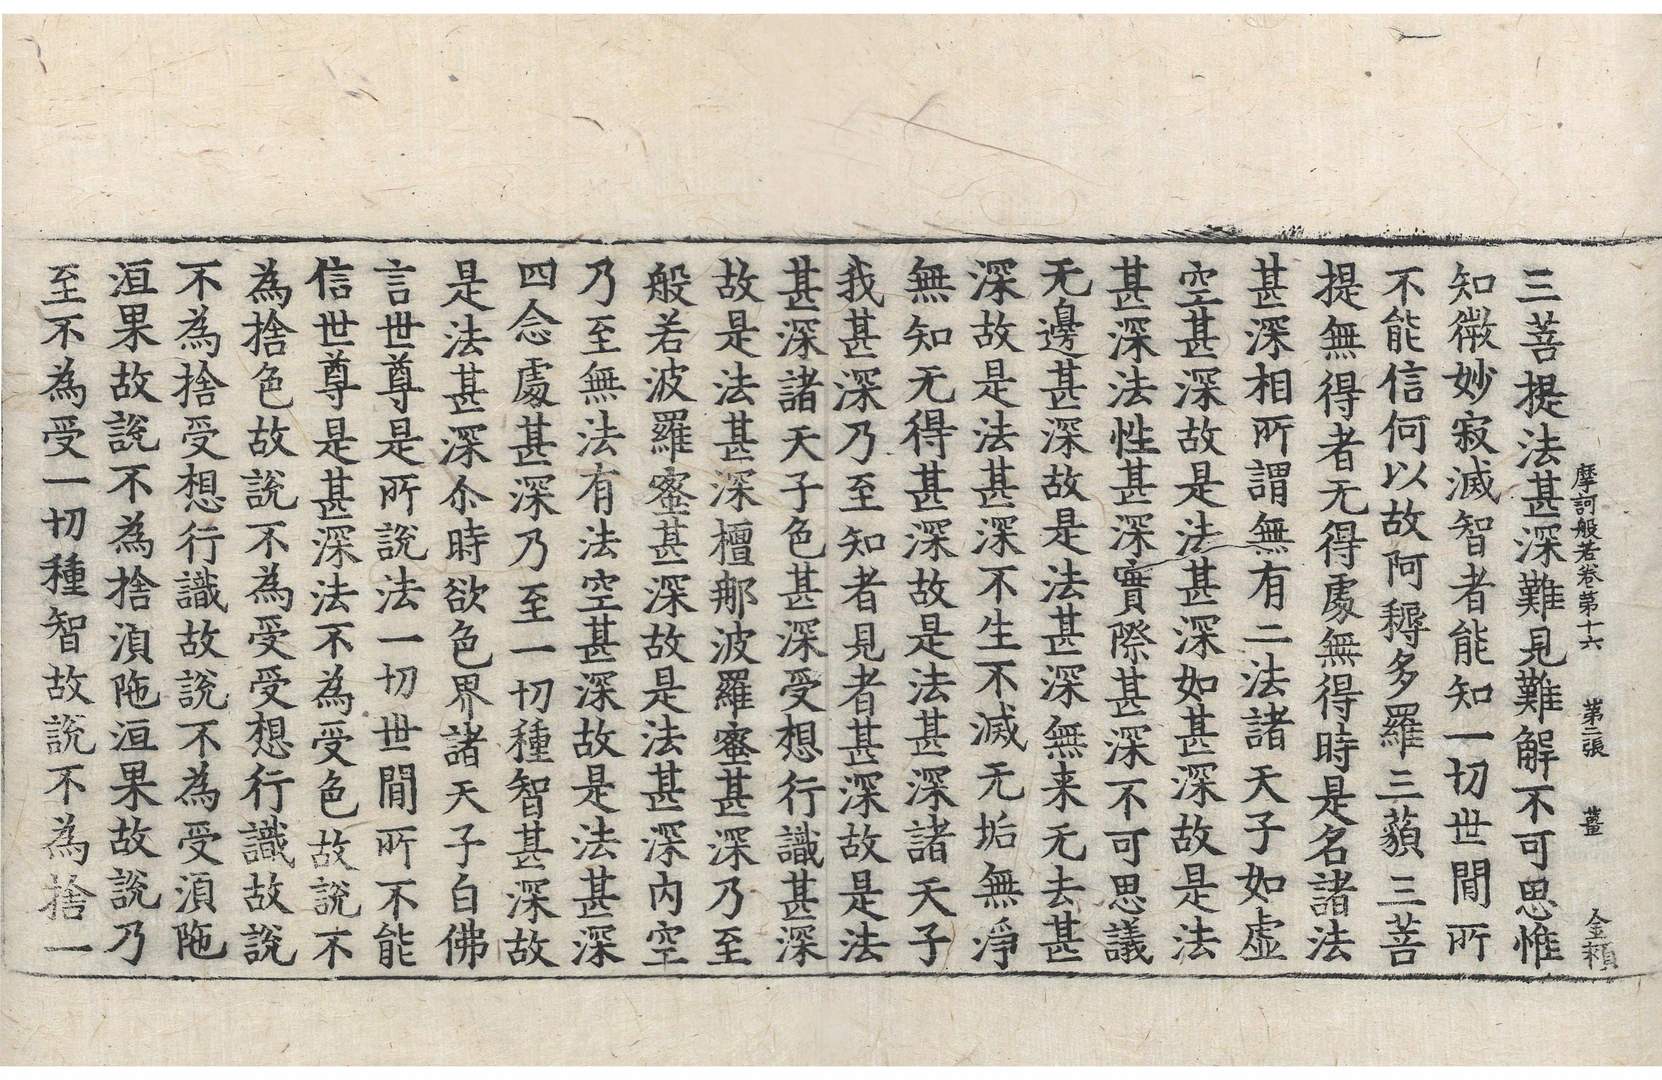 摩訶般若卷第十六 第二張 薑 金頼
三菩提法甚深難見難解不可思惟
知微妙寂滅智者能知一切世間所
不能信何以故阿耨多羅三藐三菩
提無得者无得處無得時是名諸法
甚深相所謂無有二法諸天子如虛
空甚深故是法甚深如甚深故是法
甚深法性甚深實際甚深不可思議
无邊甚深故是法甚深無来无去甚
深故是法甚深不生不滅无垢無淨
無知无得甚深故是法甚深諸天子
我甚深乃至知者見者甚深故是法
甚深諸天子色甚深受想行識甚深
故是法甚深檀那波羅蜜甚深乃至
般若波羅蜜甚深故是法甚深內空
乃至無法有法空甚深故是法甚深
四念處甚深乃至一切種智甚深故
是法甚深尒時欲色界諸天子白佛
言世尊是所說法一切世間所不能
信世尊是甚深法不為受色故說不
為捨色故說不為受受想行識故說
不為捨受想行識故說不為受湏陁
洹果故說不為捨湏陁洹果故說乃
至不為受一切種智故說不為捨一